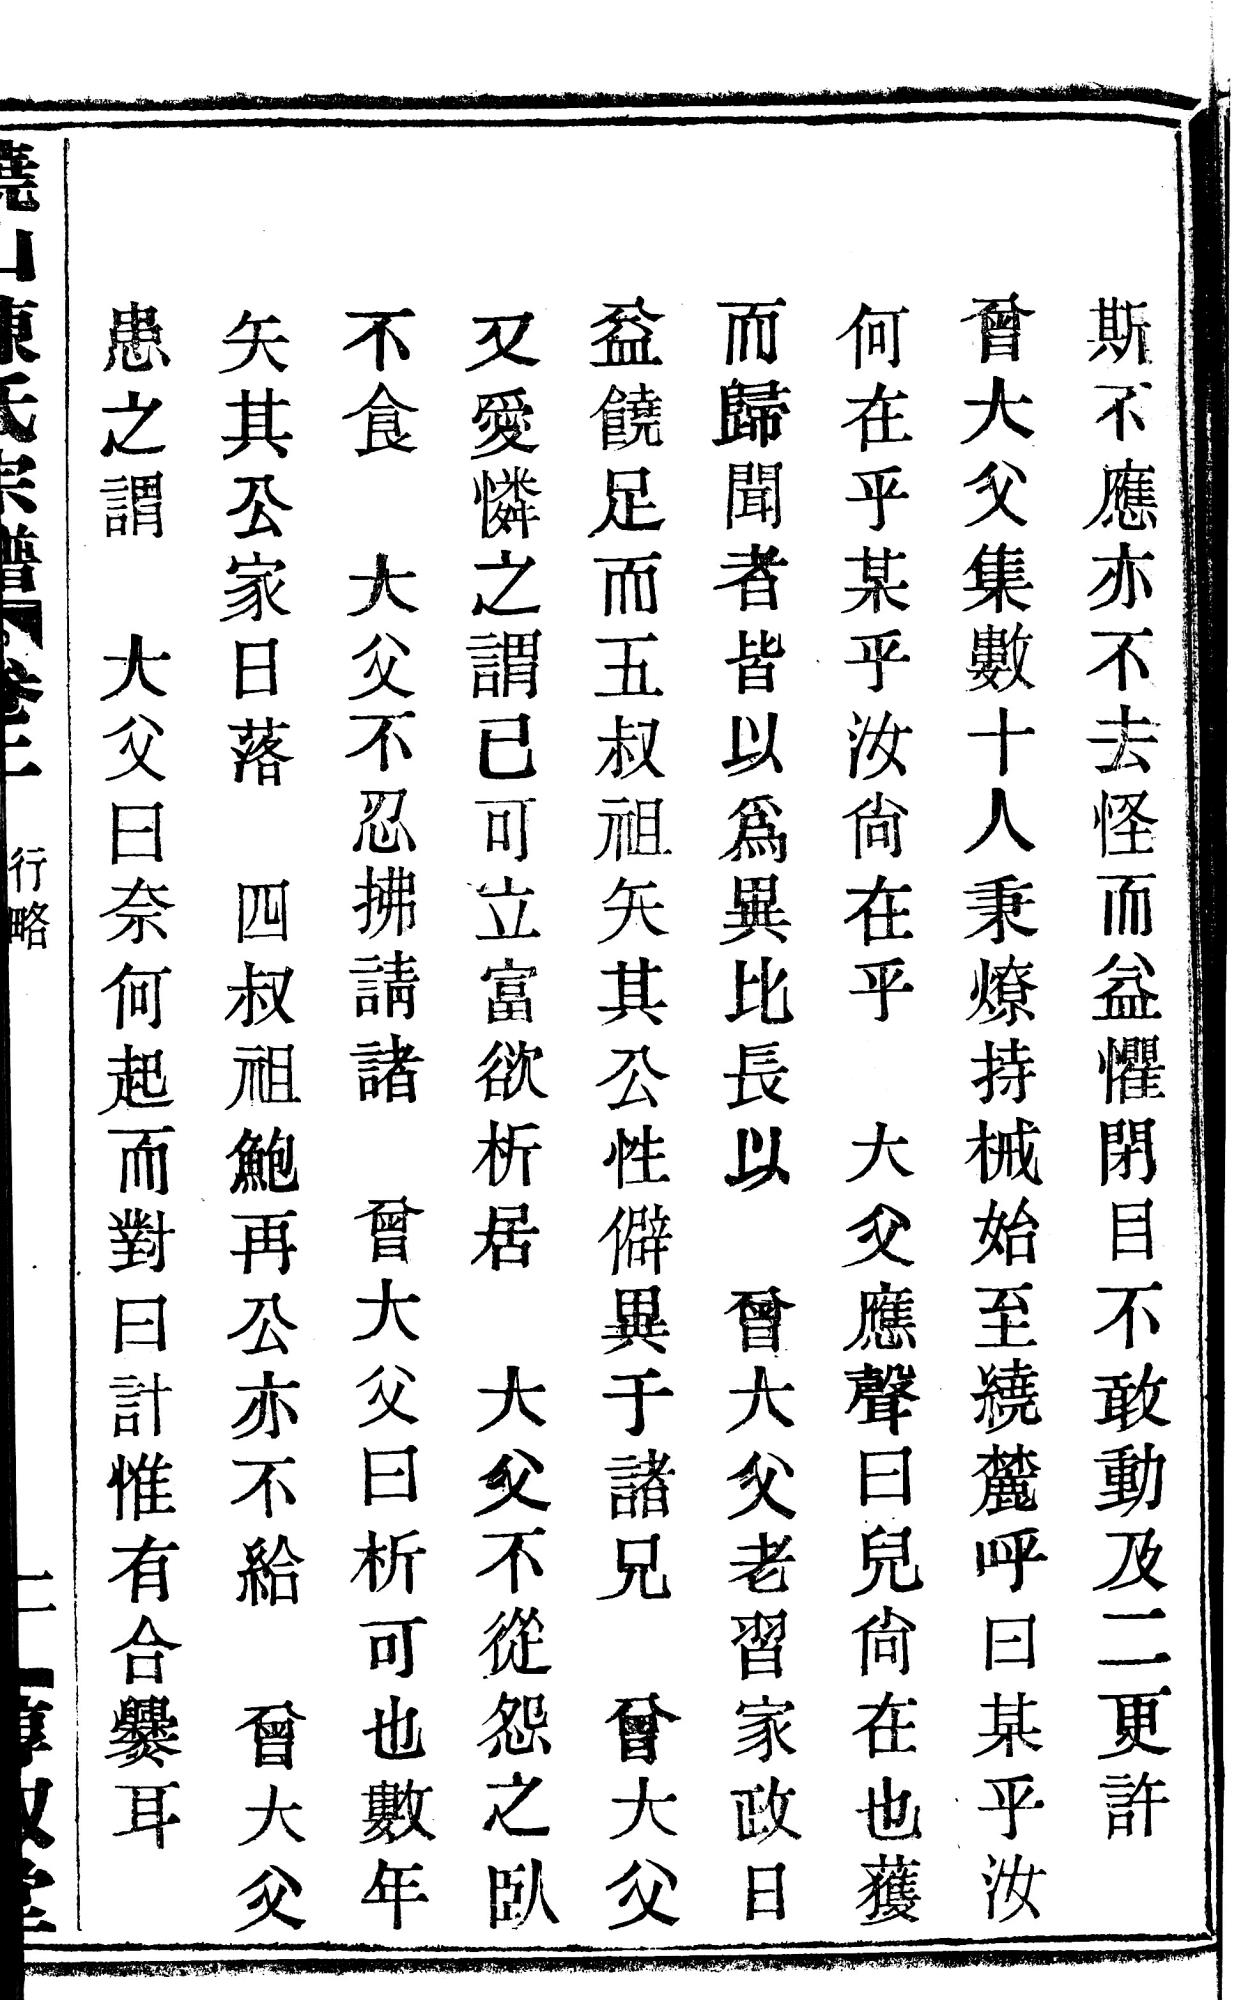 斯不應亦不去怪而益懼閉目不敢動及二更許
曾大父集數十人秉燎持械始至繞麓呼曰某乎汝
何在乎某乎汝尙在乎　大父應聲曰兒尙在也獲
而歸聞者皆以爲異比長以　曾大父老習家政日
益饒足而五叔祖矢其公性僻異于諸兄　曾大父
又愛憐之謂已可立富欲析居　大父不從怨之臥
不食　大父不忍拂請諸　曾大父曰析可也數年
矢其公家日落　四叔祖鮑再公亦不給　曾大父
患之謂　大父曰奈何起而對曰計惟有合爨耳
山陳氏宗譜 卷二 行略